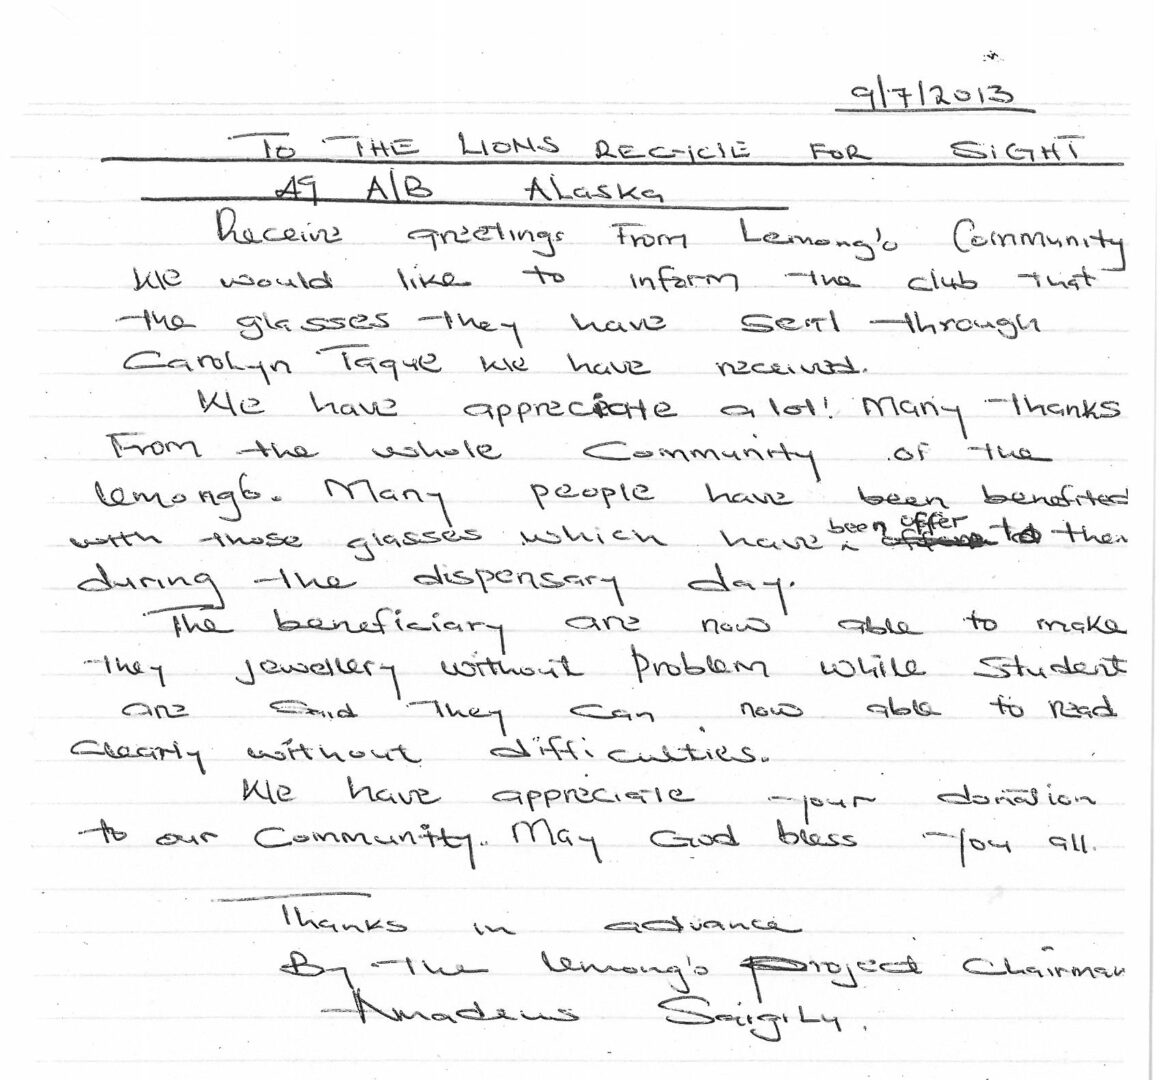 9/7/2013
To THE LIONS RECYCLE FOR SIGHT
49 A/B ALaska
Receive greetings From Lemong'o Community
We would like to inform the club that
the glasses they have sent through
Carolyn Tague we have received.
We have appreciate a lot! Many thanks
From the whole Community of the
lemongo. Many people have been benefited
with those glasses which have been offer to them
during the dispensary day.
The beneficiary are now able to make
they jewellery without problem while student
are said they can now able to read
clearly without difficulties.
We have appreciate your donation
to our Community. May God bless you all.
Thanks in advance
By the lemong'o project Chairman
Amadeus